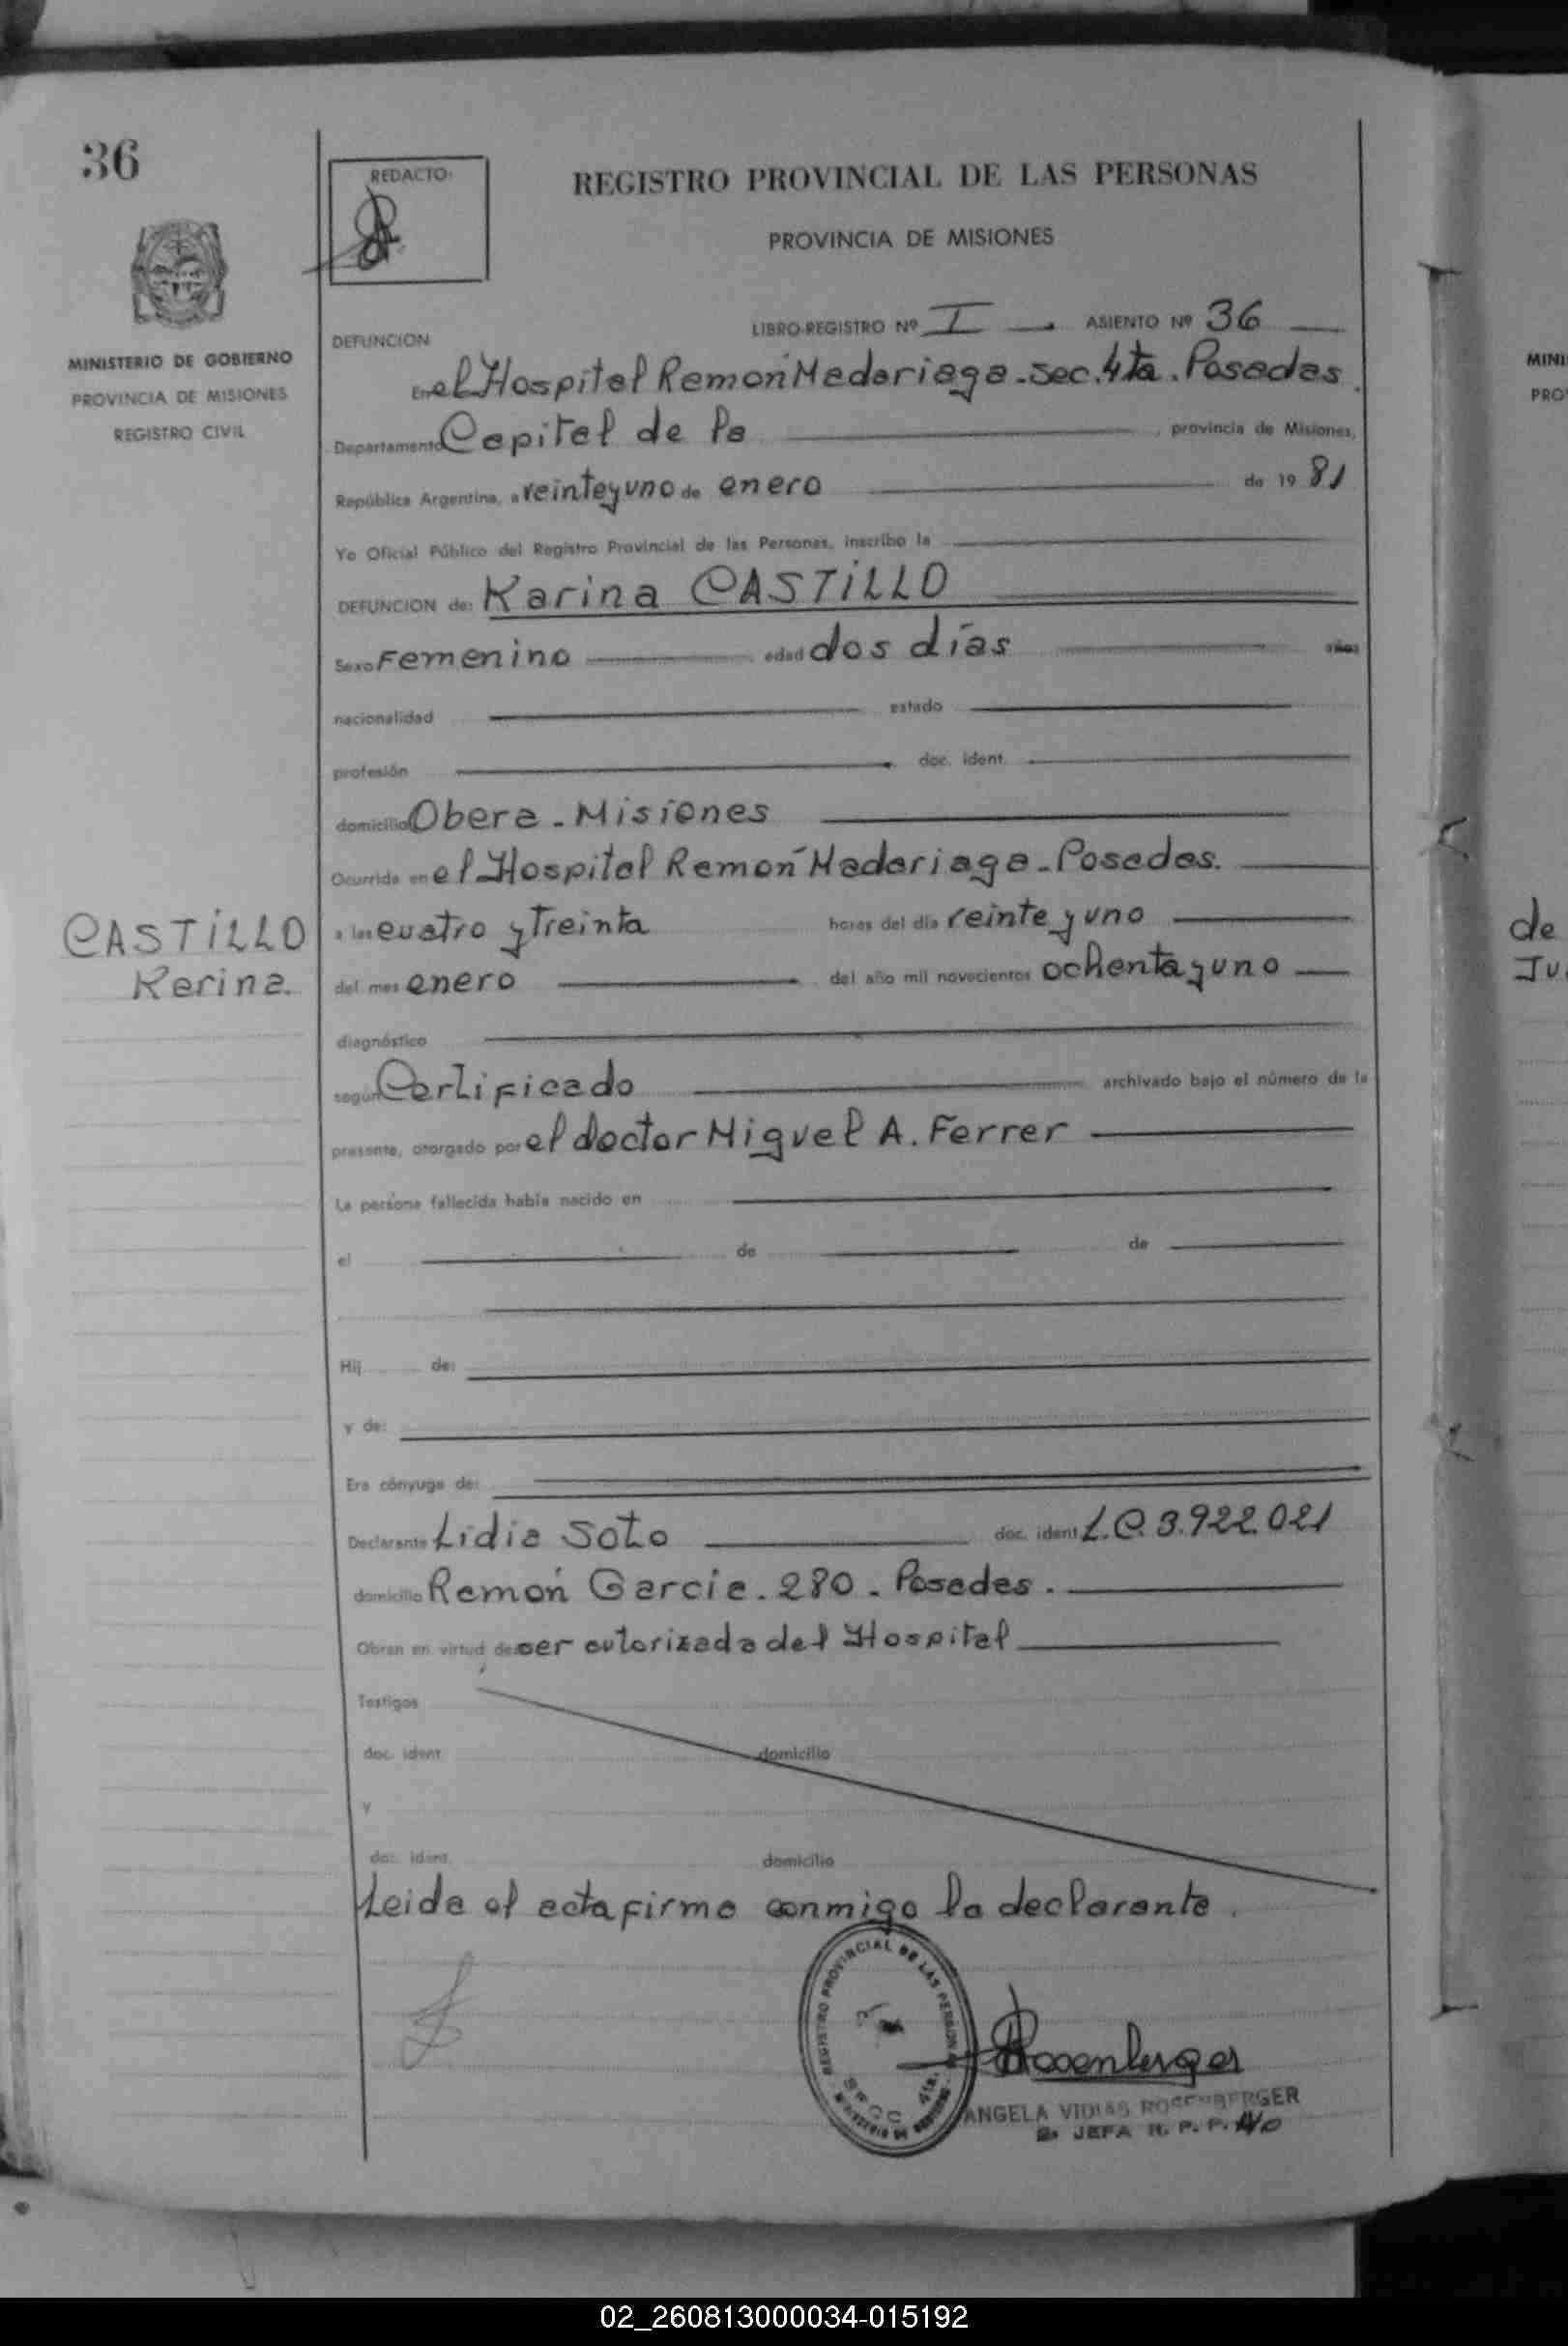 36
REDACTO:
REGISTRO PROVINCIAL DE LAS PERSONAS
PROVINCIA DE MISIONES
MINISTERIO DE GOBIERNO
PROVINCIA DE MISIONES
REGISTRO CIVIL
LIBRO-REGISTRO Nº I ASIENTO Nº 36
DEFUNCION
En el Hospital Ramón Madariaga - sec. 4ta. Posadas.
Departamento Capital de la , provincia de Misiones,
República Argentina, a veinte y uno de enero de 19 81
Yo Oficial Público del Registro Provincial de las Personas, inscribo la
DEFUNCION de: Karina CASTILLO
Sexo Femenino edad dos días años
nacionalidad estado
profesión doc. ident.
domicilio Obera - Misiones
Ocurrida en el Hospital Ramón Madariaga - Posadas.
a las cuatro y treinta horas del día veinte y uno
del mes enero del año mil novecientos ochenta y uno
CASTILLO
Karina.
diagnóstico
según Certificado archivado bajo el número de la
presente, otorgado por el doctor Miguel A. Ferrer
La persona fallecida había nacido en
el de de
Hij de:
y de:
Era cónyuge de:
Declarante Lidia Soto doc. ident L.C. 3.922.021
domicilio Ramón Garcia. 280 - Posadas.
Obran en virtud de ser autorizada del Hospital
Testigos
doc. ident. domicilio
y
doc. ident. domicilio
Leida el acta firma conmigo la declarante.
REGISTRO PROVINCIAL DE LAS PERSONAS
SECC 4ta.
Rosenberger
ANGELA VIDIAS ROSENBERGER
JEFA R. P. P.
MINI
PRO
de
Ju
02_260813000034-015192